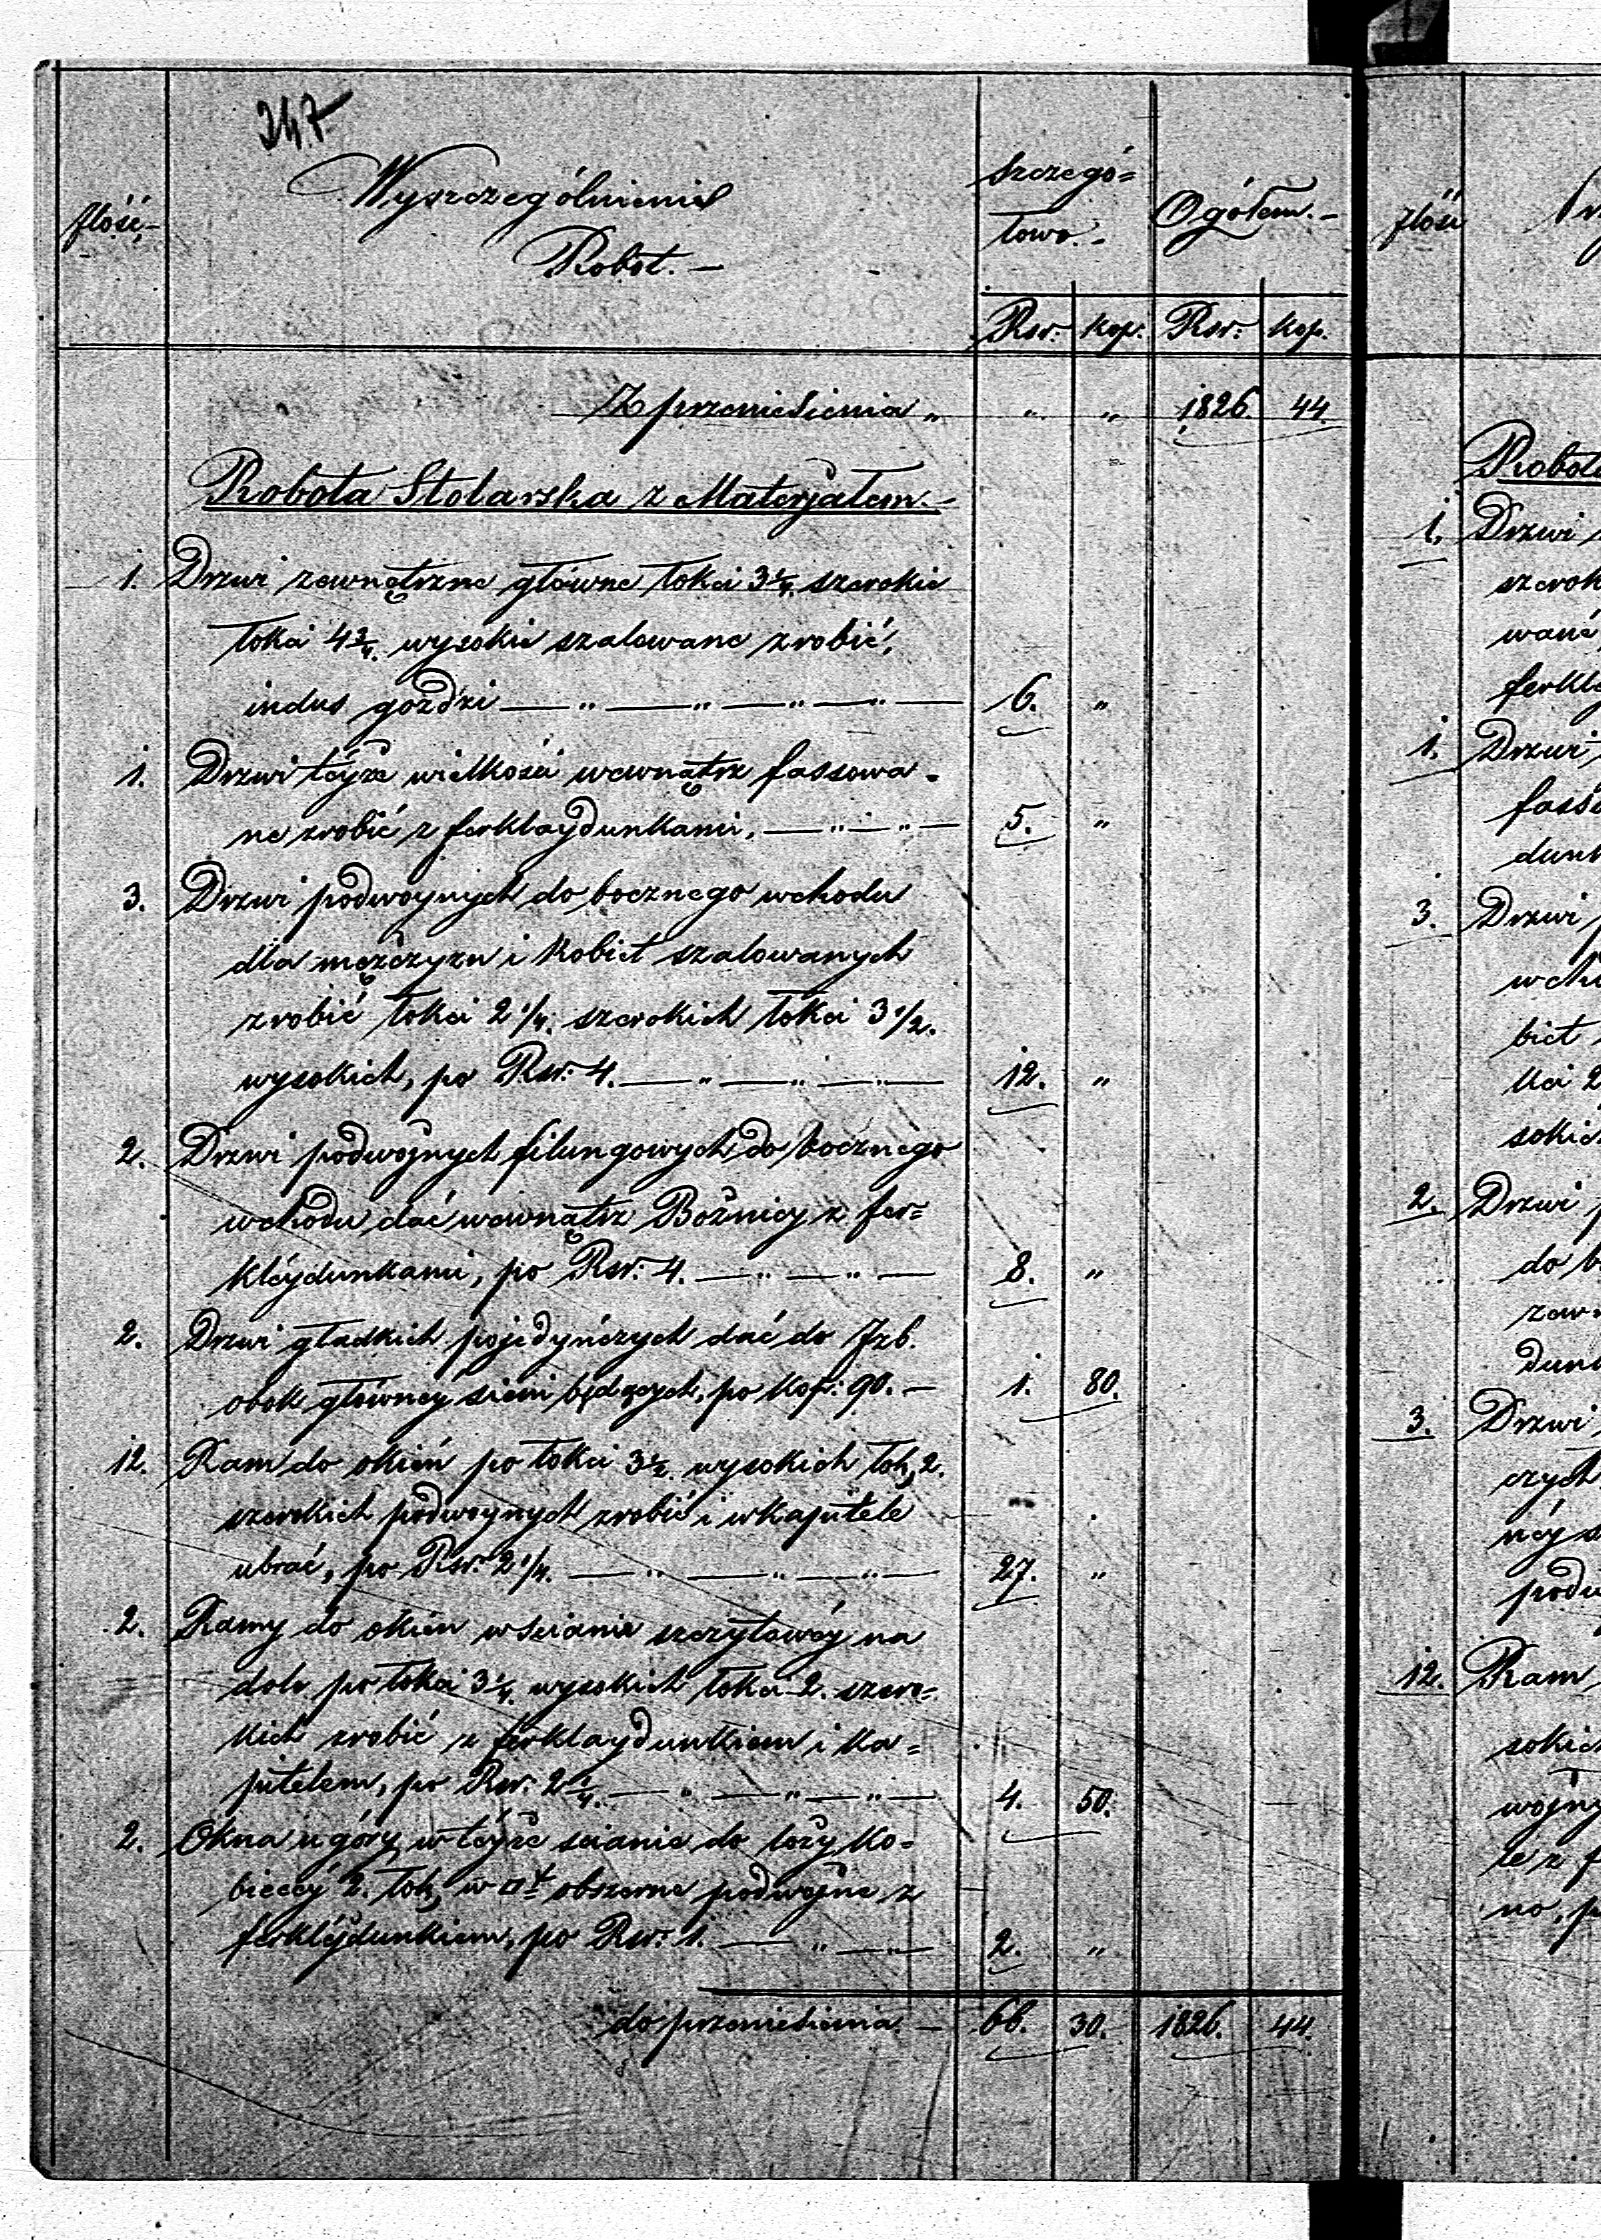 247
Ilość,- Wyszczególnienie Robot. - Szczegó= łowo. - Ogółem. -
Rsr. Kop. Rsr. Kop.
Z przeniesienia " " " 1826. 44.
Robota Stolarska z Materjałem. -
1. Drzwi zewnętrzne główne łokci 3 1/4. szerokie
łokci 4 3/4. wysokie szalowane zrobić,
indus gozdzi — " — " — " — 6. "
1. Drzwi téyże wielkości wewnątrz fassowa-
ne zrobić z ferklaydunkami, — " — " — 5. "
3. Drzwi podwoynych do bocznego wchodu
dla męzczyzn i Kobiet szalowanych
zrobić łokci 2 1/4. szerokich łokci 3 1/2.
wysokich, po Rsr. 4. — " — " — " — 12. "
2. Drzwi podwojnych filungowych do bocznego
wchodu dać wewnątrz Bożnicy z fer=
kléydunkami, po Rsr. 4. — " — " — 8. "
2. Drzwi gładkich pojedyńczych dać do Izb
obok główney sieni będących, po Kop. 90. — 1. 80.
12. Ram do okien po łokci 3 1/2 wysokich łok, 2.
szerokich podwoynych zrobić i w Kapitele
ubrać, po Rsr. 2 1/4. — " — " — " — 27. "
2. Ramy do okien w scianie szczytowéy na
dole po łokci 3 1/4. wysokich łokci 2. szero=
kich zrobić z ferklaydunkiem i Ka=
pitelem, po Rsr. 2 1/4. — " — " — " — 4. 50.
2. Okna u góry w téyże scianie do loży Ko=
biecéy 2. łok, w □t obszerne podwojne z
ferkléydunkiem, po Rsr. 1. — " — " — 2. "
do przeniesienia. — 66. 30. 1826. 44.
Ilość
Robota
1. Drzwi
szerok
wane
ferkla
1. Drzwi
fasso
dunk
3. Drzwi
wcho
biet
kci 2
sokich
2. Drzwi
do b
zew
dunk
3. Drzwi
czych
néy s
podw
12. Ram
sokich
wojny
le z f
no, p